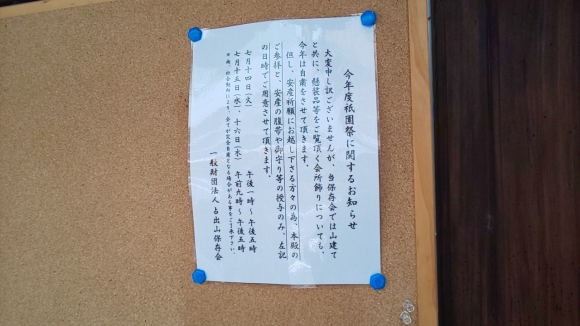 今年度祇園祭に関するお知らせ
大変申し訳ございませんが、当保存会では山建て
と共に、懸装品等をご覧頂く会所飾りについても、
今年は自粛をさせて頂きます。
但し、安産祈願にお越し下さる方々の為、本殿の
ご参拝と、安産の腹帯や御守り等の授与のみ、左記
の日時でご用意させて頂きます。
七月十四日(火) 午後一時~午後五時
七月十五日(水)、十六日(木) 午前九時~午後五時
一般財団法人 占出山保存会